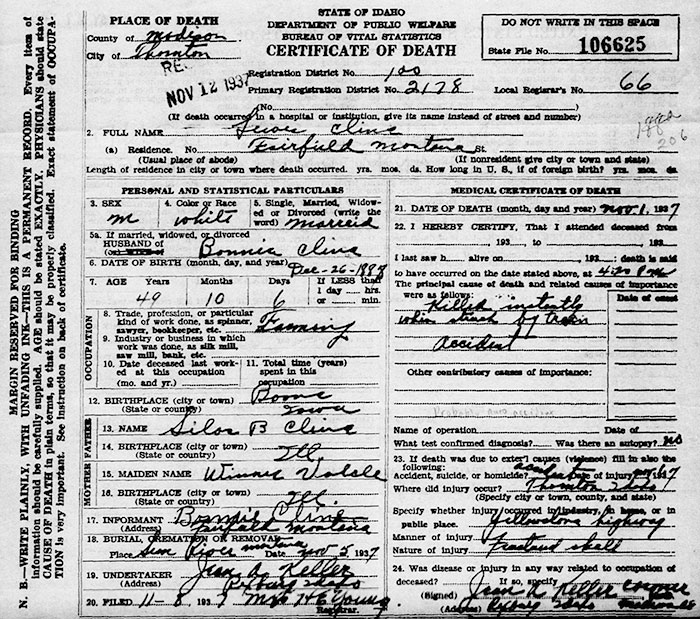 STATE OF IDAHO
DEPARTMENT OF PUBLIC WELFARE
BUREAU OF VITAL STATISTICS
CERTIFICATE OF DEATH
PLACE OF DEATH
County of Madison
City of Thornton
REC
NOV 12 1937
DO NOT WRITE IN THIS SPACE
State File No. 106625
Registration District No. 100
Primary Registration District No. 2178
Local Registrar's No. 66
(No.
(If death occurred in a hospital or institution, give its name instead of street and number)
206
2. FULL NAME Cline
(a) Residence. No. Fairfield Montana St.
(Usual place of abode) (If nonresident give city or town and state)
Length of residence in city or town where death occurred. yrs. mos. ds. How long in U. S., if of foreign birth? yrs. mos. ds.
MARGIN RESERVED FOR BINDING
N. B.—WRITE PLAINLY, WITH UNFADING INK—THIS IS A PERMANENT RECORD. Every item of
information should be carefully supplied. AGE should be stated EXACTLY. PHYSICIANS should state
CAUSE OF DEATH in plain terms, so that it may be properly classified. Exact statement of OCCUPA-
TION is very important. See instruction on back of certificate.
PERSONAL AND STATISTICAL PARTICULARS
3. SEX M
4. Color or Race white
5. Single, Married, Widow-
ed or Divorced (write the
word) married
5a. If married, widowed or divorced
HUSBAND of
(or) WIFE of Bonnie Cline
6. DATE OF BIRTH (month, day, and year) Dec-26-1887
7. AGE Years Months Days If LESS than
1 day hrs.
or min.
49 10 6
OCCUPATION
8. Trade, profession, or particular
kind of work done, as spinner,
sawyer, bookkeeper, etc. Farming
9. Industry or business in which
work was done, as silk mill,
saw mill, bank, etc.
10. Date deceased last work-
ed at this occupation
(mo. and yr.)
11. Total time (years)
spent in this
occupation
12. BIRTHPLACE (city or town) Boone
(State or country) Iowa
FATHER
13. NAME Silas B Cline
14. BIRTHPLACE (city or town)
(State or country) Ill.
MOTHER
15. MAIDEN NAME
16. BIRTHPLACE (city or town)
(State or country) Ill.
17. INFORMANT Bonnie Cline
(Address) Fairfield Montana
18. BURIAL, CREMATION OR REMOVAL
Place Sun River Montana Date Nov 5 1937
19. UNDERTAKER Keller
(Address) Rexburg Idaho
20. FILED 11-8 1937 Mrs H C Young
Registrar.
MEDICAL CERTIFICATE OF DEATH
21. DATE OF DEATH (month, day and year) Nov. 1, 1937
22. I HEREBY CERTIFY, That I attended deceased from
, 193 , to , 193
I last saw h alive on , 193 ; death is said
to have occurred on the date stated above, at 4:20 P m
The principal cause of death and related causes of importance
were as follows: Date of onset
Killed instantly
when struck by Train
Accident
Other contributory causes of importance:
Name of operation Date of
What test confirmed diagnosis? Was there an autopsy? no
23. If death was due to external causes (violence) fill in also the
following:
Accident, suicide, or homicide? accident Date of injury Nov 1, 1937
Where did injury occur? Thornton Idaho
(Specify city or town, county, and state)
Specify whether injury occurred in industry, in home, or in
public place. Yellowstone highway
Manner of injury
Nature of injury Fractured skull
24. Was disease or injury in any way related to occupation of
deceased? If so, specify
(Signed) Keller coroner
(Address) Rexburg Idaho